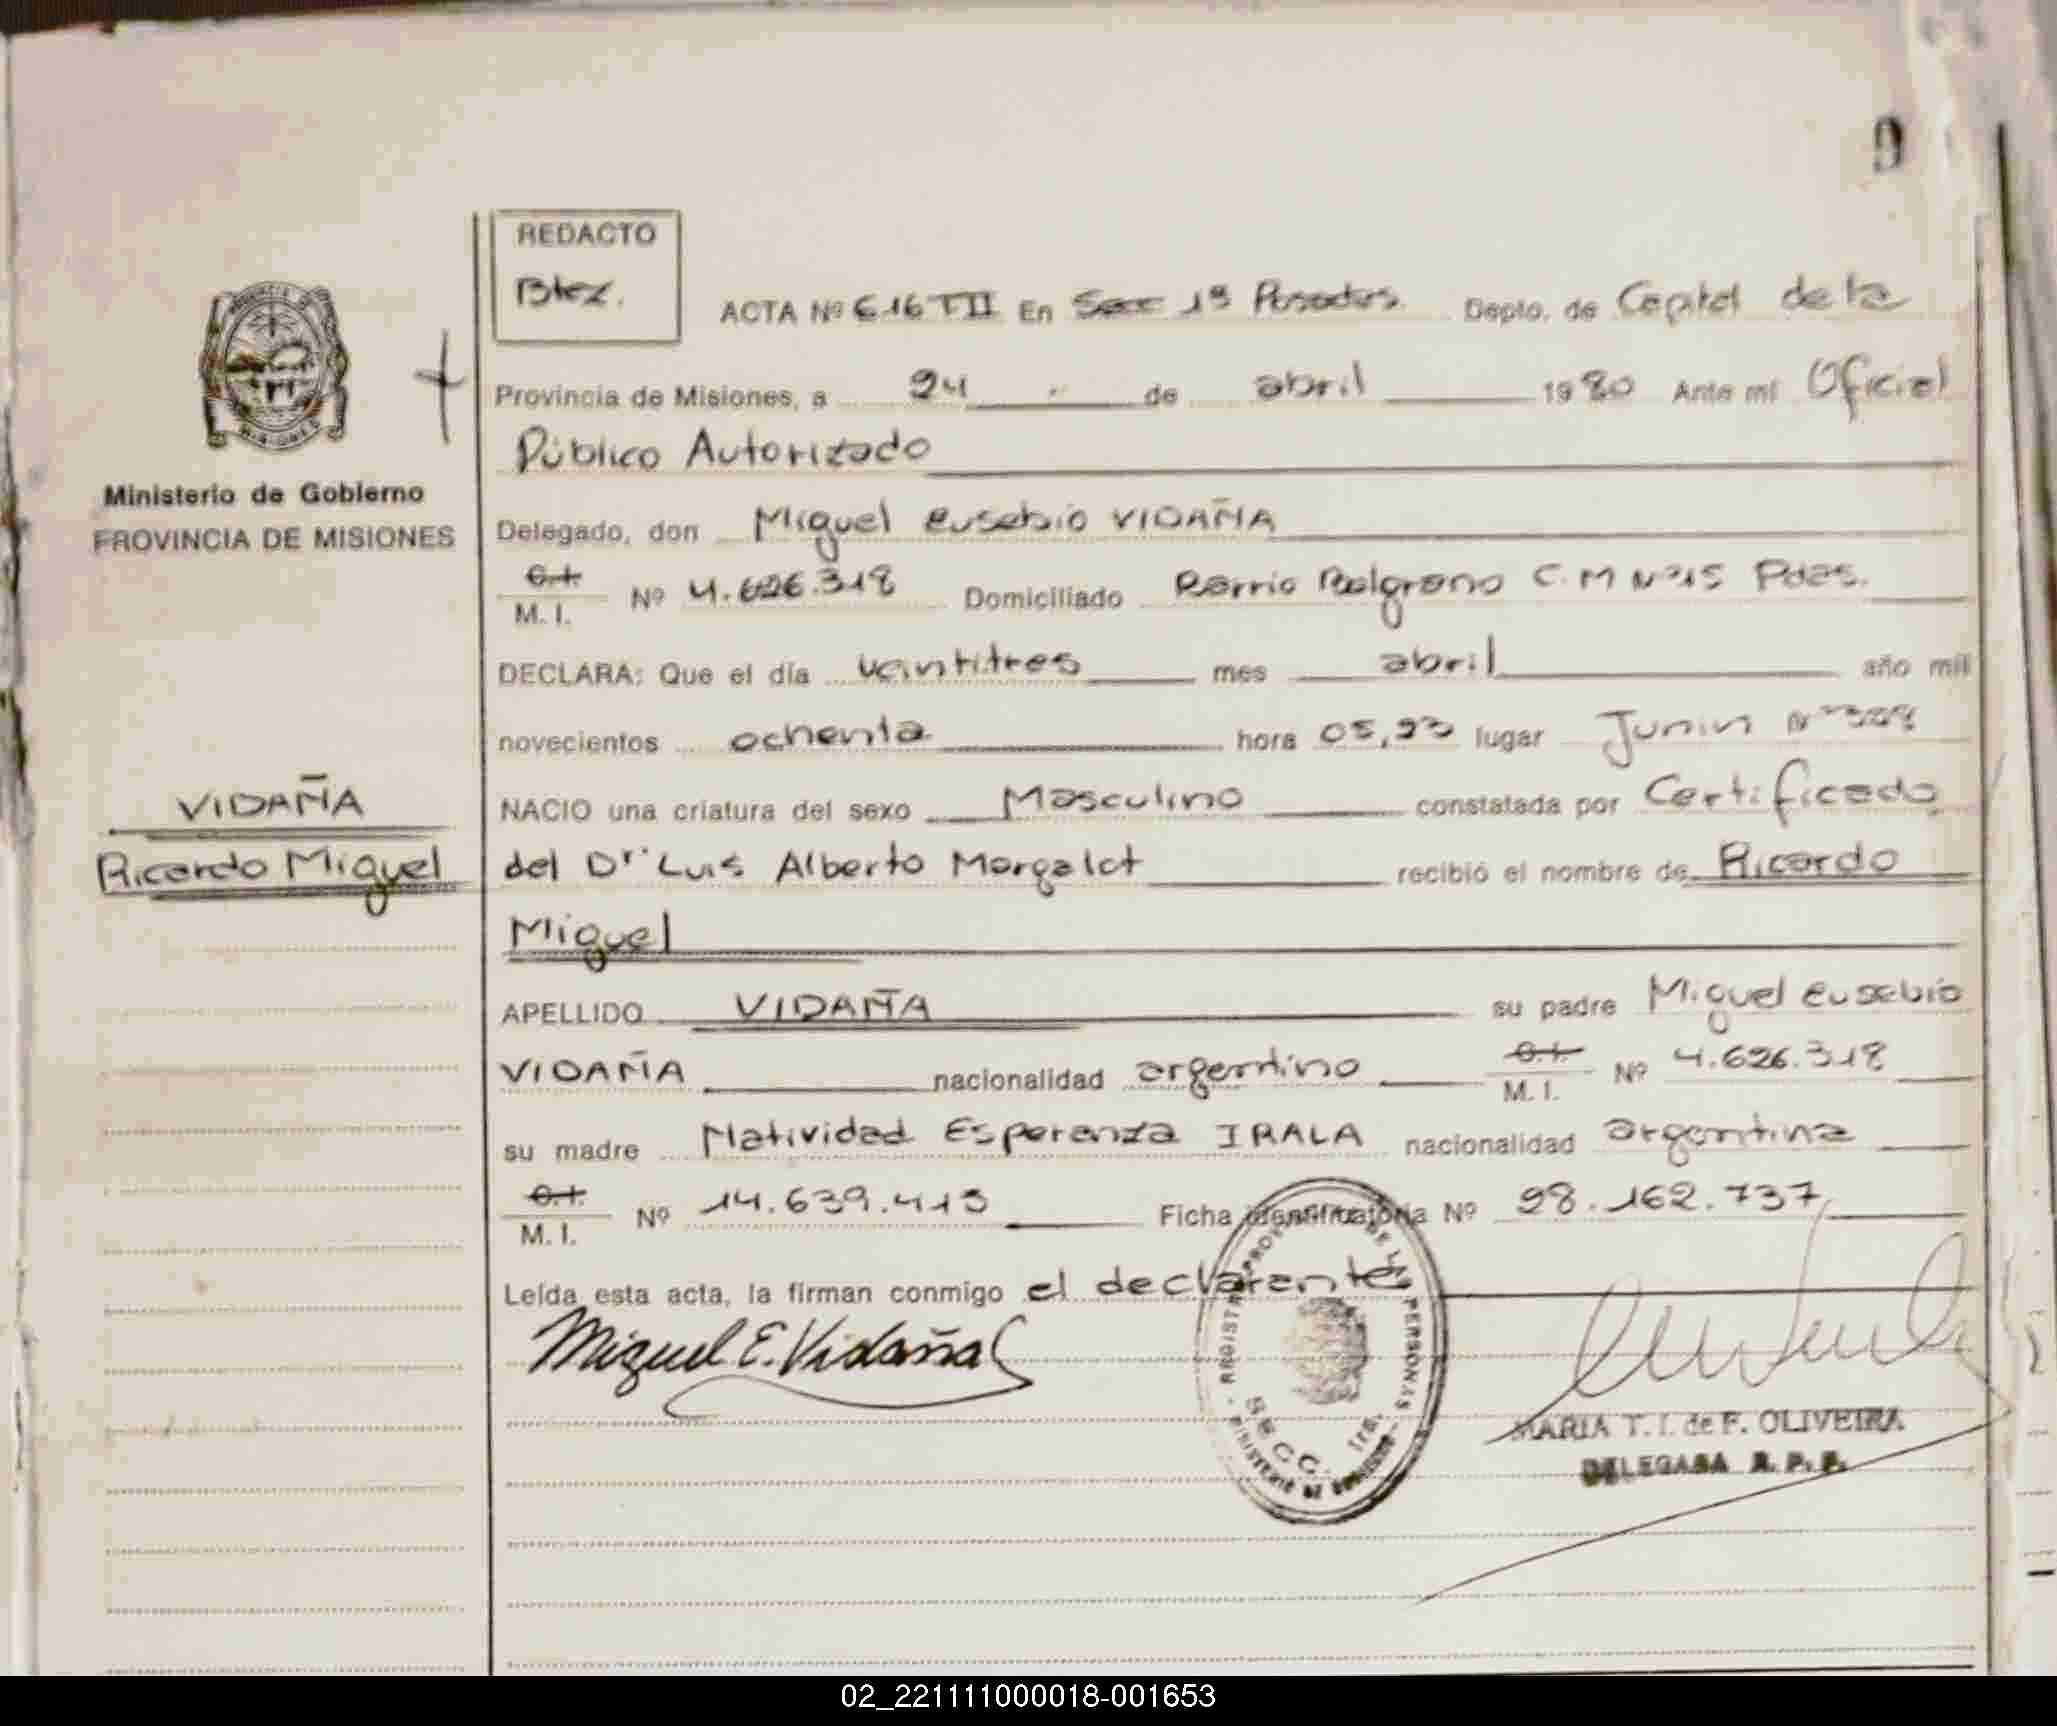 REDACTO
Btez.
ACTA Nº 616 TII En Secc 1ª Posadas. Depto. de Capital de la
Provincia de Misiones, a 24 de abril 1980 Ante mi Oficial
Público Autorizado
Ministerio de Gobierno
PROVINCIA DE MISIONES
Delegado, don Miguel Eusebio VIDAÑA
C.I. M. I. Nº 4.626.318 Domiciliado Barrio Belgrano C.M Nº15 Pdas.
DECLARA: Que el día veintitres mes abril año mil
novecientos ochenta hora 05,23 lugar Junin Nº
VIDAÑA
NACIO una criatura del sexo Masculino constatada por Certificado
Ricardo Miguel
del Dr. Luis Alberto recibió el nombre de Ricardo
Miguel
APELLIDO VIDAÑA su padre Miguel Eusebio
VIDAÑA nacionalidad argentino C.I. M. I. Nº 4.626.318
su madre Natividad Esperanza IRALA nacionalidad argentina
C.I. M. I. Nº 14.639.413 Ficha identificatoria Nº 28.162.737
Leída esta acta, la firman conmigo el declarante
Miguel E. Vidaña
REGISTRO PROV. DE LAS PERSONAS
SECC. 1ra.
MINISTERIO DE GOBIERNO
MARIA T. I. de F. OLIVEIRA
DELEGADA R. P. P.
02_221111000018-001653